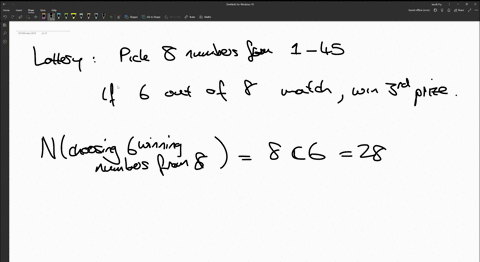 Lottery: Pick 8 numbers from 1-45
If 6 out of 8 match, win 3rd prize.
N(choosing 6 winning numbers from 8) = 8C6 = 28